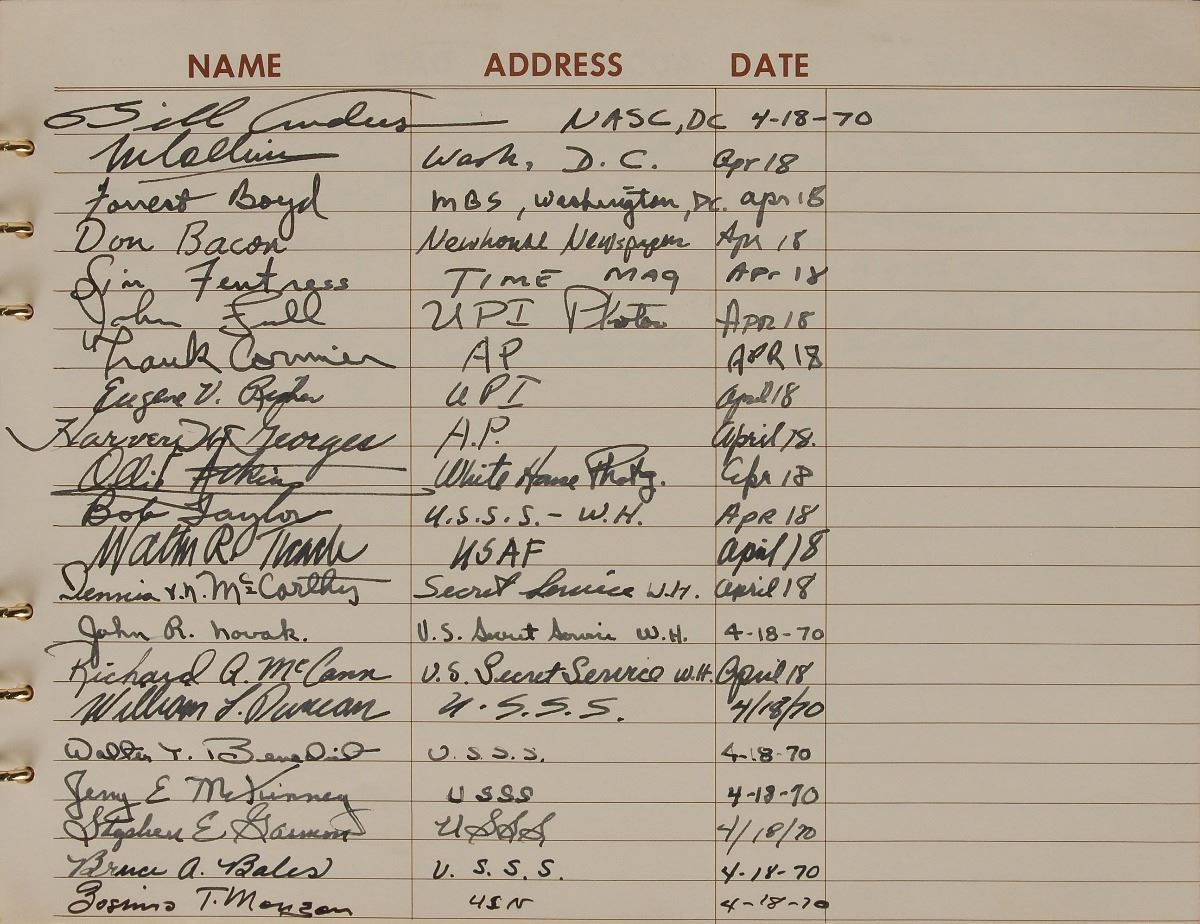 NAME ADDRESS DATE
Bill Anders NASC, DC 4-18-70
MCollins Wash, D.C. Apr 18
Forrest Boyd MBS, Washington, DC. apr 18
Don Bacon Newhouse Newspapers Apr 18
Jim Fentress TIME MAG APr 18
John Full UPI Photos APR 18
Frank Cormier AP APR 18
Eugene V. UPI April 18
Harvey W Georges A.P. April 18.
Ollie Atkins White House Photog. Apr 18
Bob Taylor U.S.S.S. - W.H. APR 18
Walter R. USAF April 18
Dennis V.N. McCarthy Secret Service W.H. April 18
John R. Novak. U.S. Secret Service W.H. 4-18-70
Richard A. McCann U.S. Secret Service W.H. April 18
William L. Duncan U.S.S.S. 4/18/70
Walter T. Benedict U.S.S.S. 4-18-70
Jerry E McKinney USSS 4-18-70
Stephen E Garmon USSS 4/18/70
Bruce A. Bales U.S.S.S. 4-18-70
Zosimo T. Monzon USN 4-18-70